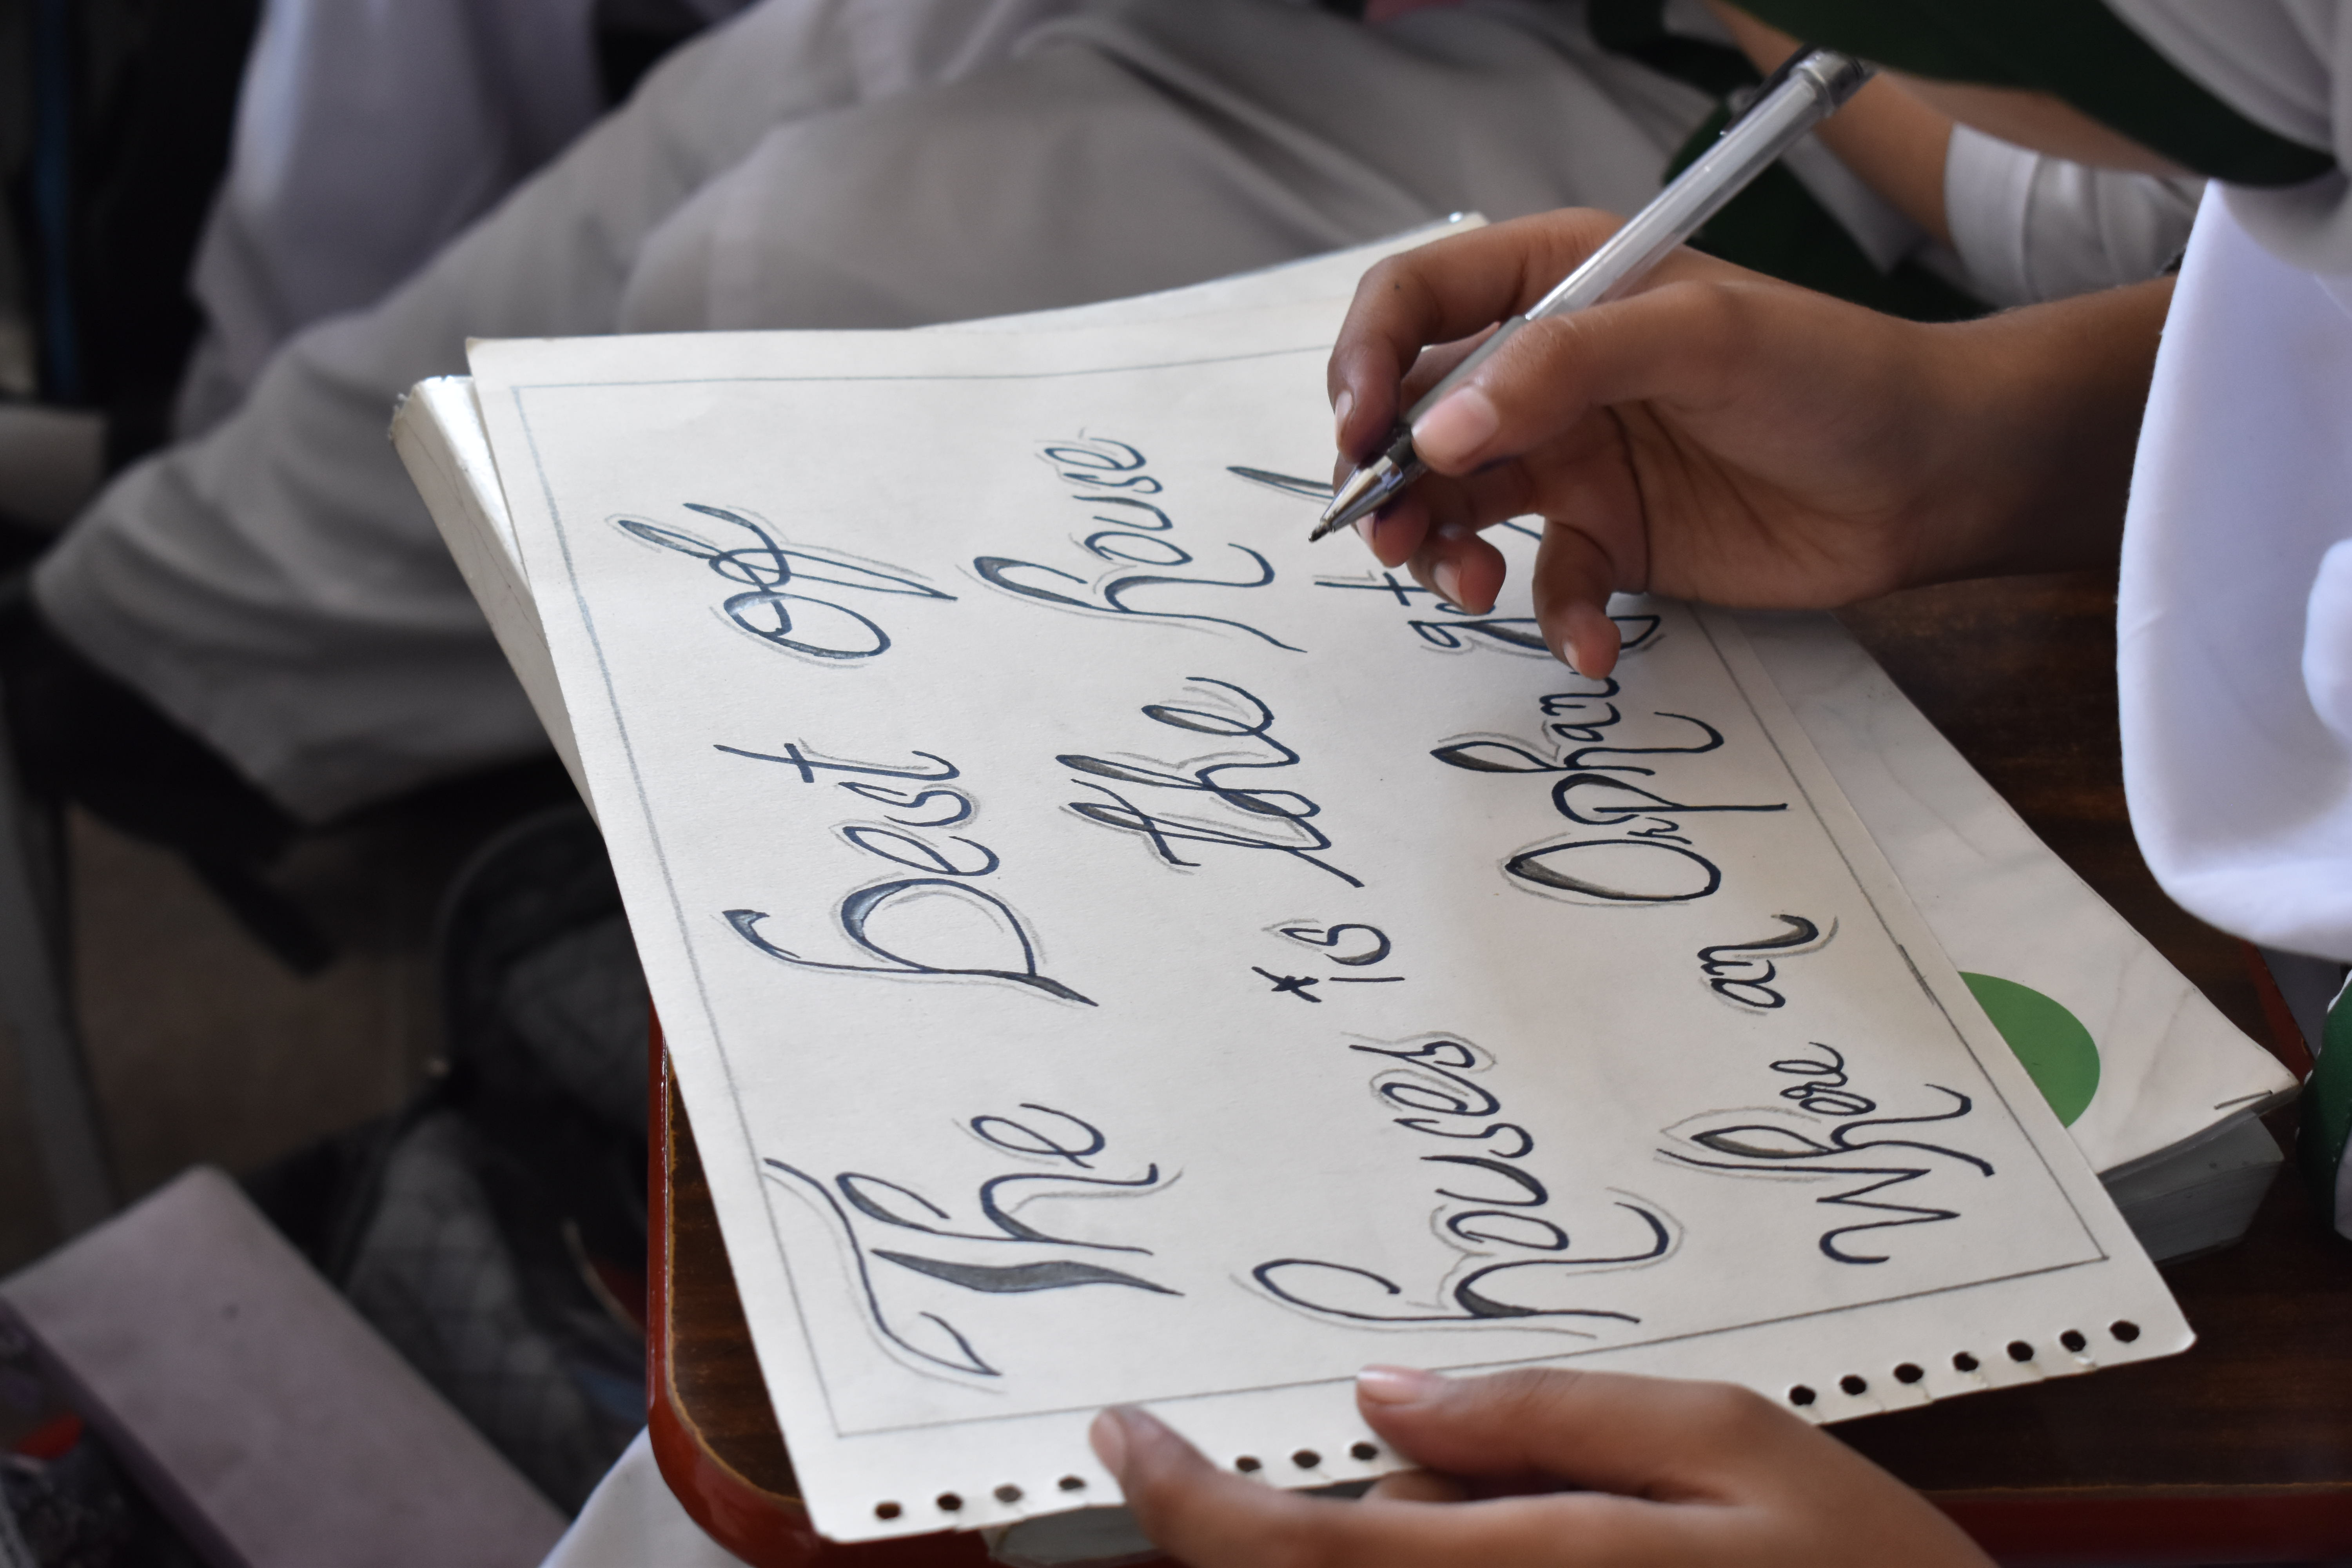 The best of
houses is the house
Where an Orphan